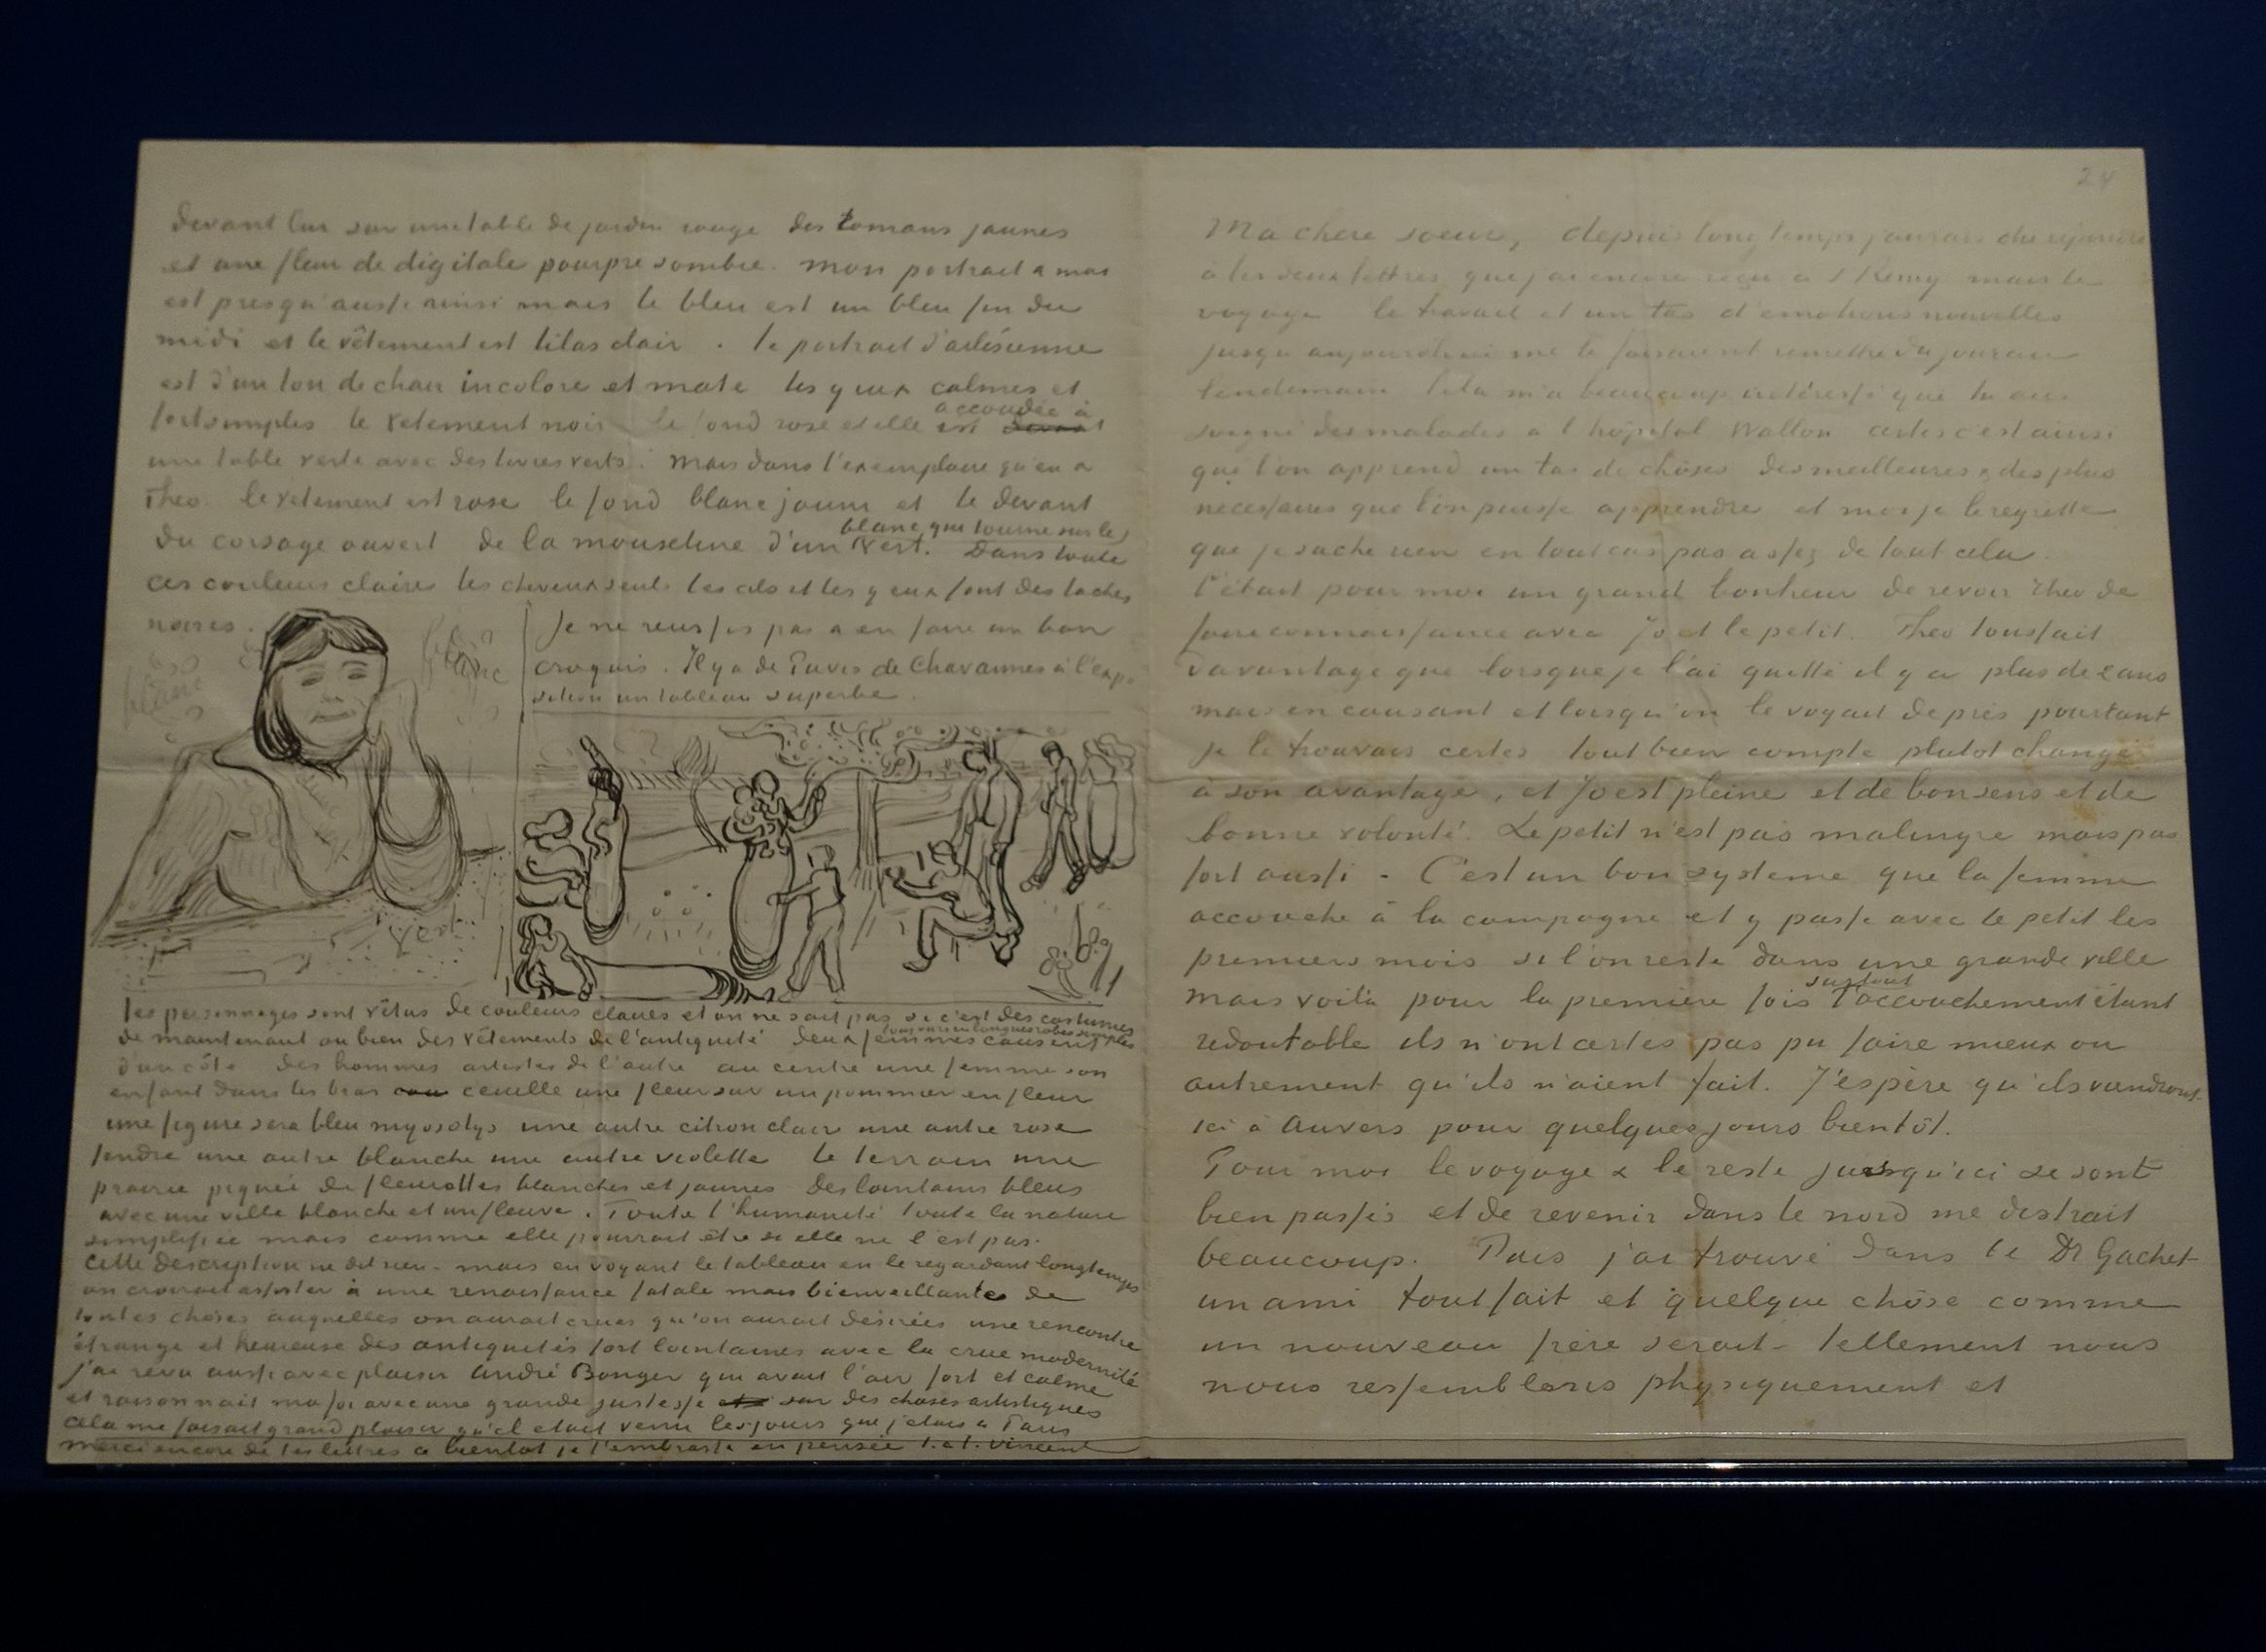 24
Ma chere soeur, depuis longtemps j'aurais dû répondre
à tes deux lettres que j'ai encore reçu à S Remy mais le
voyage le travail et un tas d'émotions nouvelles
jusqu'aujourd'hui me le faisaient remettre du jour au
lendemain. Cela m'a beaucoup intéressé que tu aies
soigné des malades à l'hôpital Wallon certes c'est ainsi
que l'on apprend un tas de chôses des meilleures & des plus
necessaires que l'on puisse apprendre et moi je le regrette
que je sache rien en tout cas pas assez de tout cela.
C'était pour moi un grand bonheur de revoir Theo de
faire connaissance avec Jo et le petit. Theo toussait
davantage que lorsque je l'ai quitté il y a plus de 2 ans
mais en causant et lorsqu'on le voyait de près pourtant
je le trouvais certes tout bien compté plutot changé
à son avantage, et Jo est pleine et de bon sens et de
bonne volonté. Le petit n'est pas malingre mais pas
fort aussi - C'est un bon systeme que la femme
accouche à la campagne et y passe avec le petit les
premiers mois si l'on reste dans une grande ville
mais voilà pour la première fois surtout l'accouchement étant
redoutable ils n'ont certes pas pu faire mieux ou
autrement qu'ils n'aient fait. J'espère qu'ils viendront
ici à Auvers pour quelques jours bientôt.
Pour moi le voyage & le reste jusqu'ici se sont
bien passés et de revenir dans le nord me distrait
beaucoup. Puis j'ai trouvé dans le Dr Gachet
un ami tout fait et quelque chôse comme
un nouveau frère serait - tellement nous
nous ressemblons physiquement et
devant lui sur une table de jardin rouge des romans jaunes
et une fleur de digitale pourpre sombre. Mon portrait à moi
est presqu'aussi ainsi mais le bleu est un bleu fin du
midi et le vêtement est lilas clair. Le portrait d'arlésienne
est d'un ton de chair incolore et mate les yeux calmes et
fort simples le vetement noir le fond rose et elle est accoudée à
une table verte avec des livres verts. Mais dans l'exemplaire qu'en a
Theo le vetement est rose le fond blanc jaune et le devant
du corsage ouvert de la mousseline d'un blanc qui tourne sur le
vert. Dans toute
ces couleurs claires les cheveux seuls les cils et les yeux font des taches
noires.
Je ne reussis pas a en faire un bon
croquis. Il y a de Puvis de Chavannes à l'expo
sition un tableau superbe.
blanc
blanc
vert
les personnages sont vêtus de couleurs claires et on ne sait pas si c'est des costumes
de maintenant ou bien des vêtements de l'antiquité deux femmes causent tous vus en longues robes simples
d'un côté des hommes artistes de l'autre au centre une femme son
enfant dans les bras cueille une fleur sur un pommier en fleur
une figure sera bleu myosotys une autre citron clair une autre rose
tendre une autre blanche une autre violette le terrain une
prairie piquée de fleurettes blanches et jaunes des lointains bleus
avec une ville blanche et un fleuve. Toute l'humanité toute la nature
simplifiée mais comme elle pourrait être si elle ne l'est pas.
Cette description ne dit rien - mais en voyant le tableau en le regardant longtemps
on croirait assister à une renaissance fatale mais bienveillante de
toutes choses auquelles on aurait crues qu'on aurait désirées une rencontre
étrange et heureuse des antiquités fort lointaines avec la crue modernité
j'ai revu aussi avec plaisir André Bonger qui avait l'air fort et calme
et raisonnait ma foi avec une grande justesse sur des choses artistiques
Cela me faisait grand plaisir qu'il etait venu les jours que j'etais à Paris
merci encore de tes lettres a bientot je t'embrasse en pensée t. à t. Vincent